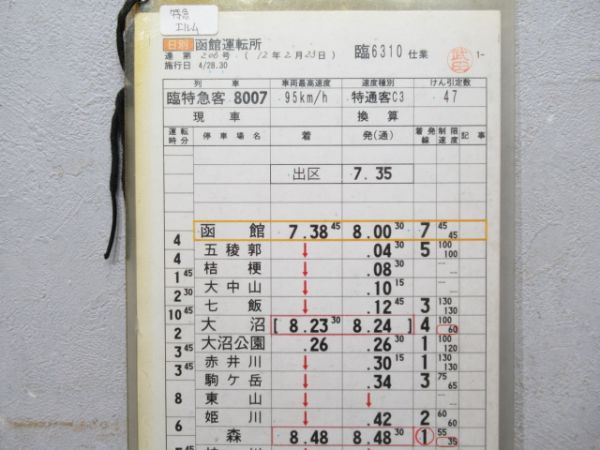 特急
エルム
日別 函館運転所
達 第 206 号 . ( 12年 2月 23日 ) 臨6310 仕業 武田 1-
施行日 4/28.30
列 車 車両最高速度 速度種別 けん引定数
臨特急客 8007 95km/h 特通客C3 47
現 車 換 算
運転時分 停車場名 着 発(通) 着発線 制限速度 記事
出区 7.35
函 館 7.38 45 8.00 30 7 45 45
4
五稜郭 ↓ .04 30 5 100 100
4
桔 梗 ↓ .08 30 … …
1 45
大中山 ↓ .10 15 … …
2 30
七 飯 ↓ .12 45 3 130 130
10 45
大 沼 [ 8.23 30 8.24 ] 4 100 60
2
大沼公園 .26 .26 30 1 100 120
3 45
赤井川 ↓ .30 15 1 130 130
3 45
駒ケ岳 ↓ .34 3 75 65
東 山 ↓ ↓ … …
8
姫 川 ↓ .42 2 60 60
6
森 8.48 8.48 30 1 55 35